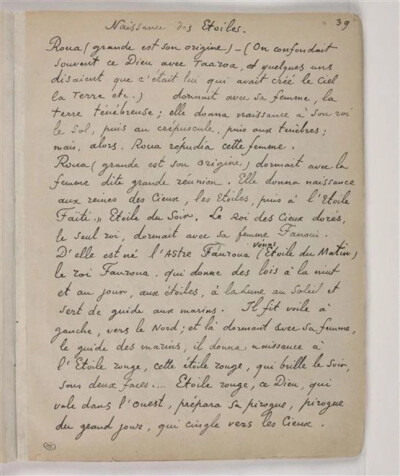 39
Naissance des Etoiles.
Roua (grande est son origine) - (On confondait
souvent ce Dieu avec Taaroa, et quelques uns
disaient que c'était lui qui avait créé le Ciel
la Terre etc.) dormait avec sa femme, la
terre ténébreuse; elle donna naissance à son roi
le Sol, puis au crépuscule, puis aux ténèbres;
mais, alors Roua répudia cette femme.
Roua (grande est son origine) dormait avec la
femme dite grande réunion. Elle donna naissance
aux reines des Cieux, les Etoiles, puis à l'Etoile
Faïti, Etoile du Soir. Le Roi des Cieux dorés,
le seul roi, dormait avec sa femme Fanoui.
D'elle est né l'Astre Fauroua Vénus (Etoile du Matin)
le roi Fauroua qui donne des lois à la nuit
et au jour, aux étoiles, à la Lune au Soleil et
sert de guide aux marins. Il fit voile à
gauche, vers le Nord; et là dormant avec sa femme,
le guide des marins, il donna naissance à
l'Etoile rouge, cette étoile rouge, qui brille le Soir,
sous deux faces.... Etoile rouge, ce Dieu, qui
vole dans l'Ouest, prépara sa pirogue, pirogue
du grand jour, qui cingle vers les Cieux.